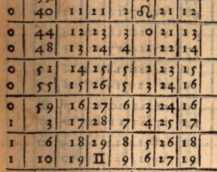 0 40 11 11 2 ♌ 21 12
0 44 12 23 3 0 21 13
0 48 13 24 4 1 22 14
0 51 14 25 5 2 23 15
0 55 15 26 5 3 24 16
0 59 16 27 6 3 24 16
1 3 17 28 7 4 25 17
1 6 18 29 8 5 26 18
1 10 19 ♊ 9 6 27 19